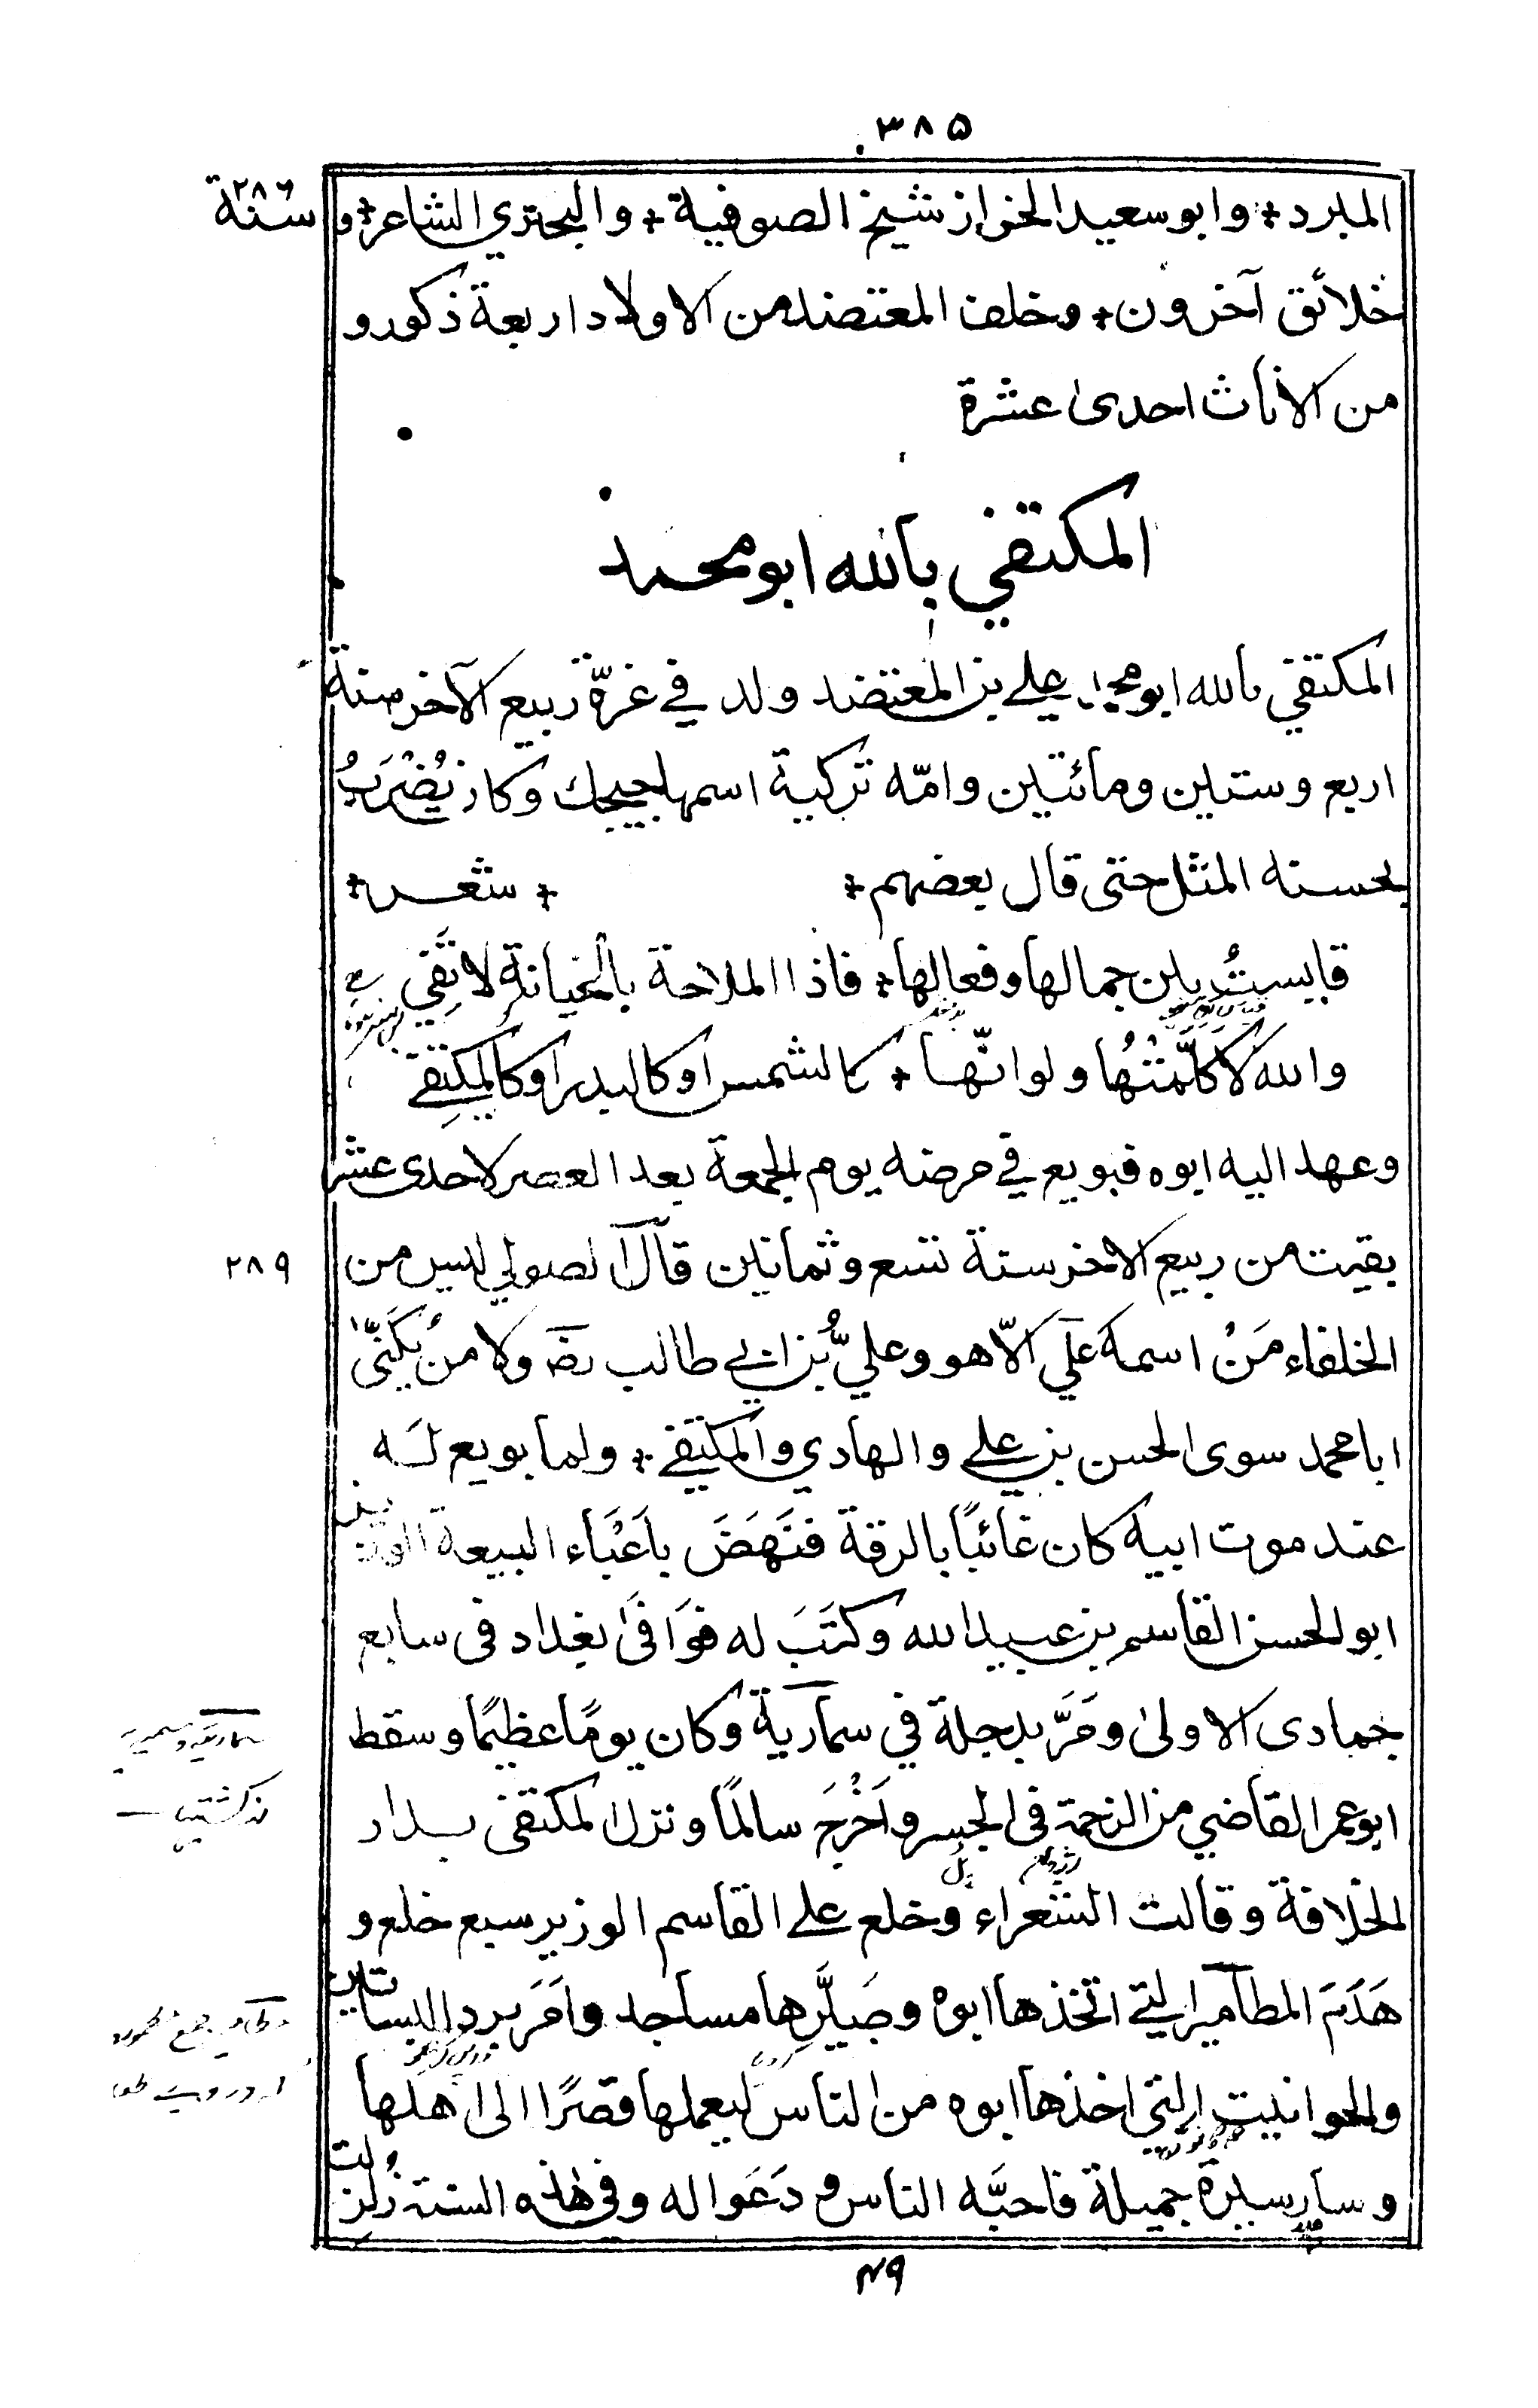 ٣٨٥
المبرد * وابو سعيد الخراز شيخ الصوفية * والبحتري الشاعر * و سنة ٢٨٦
خلائق آخرون * وخلف المعتضد من الاولاد اربعة ذكور و
من الاناث احدى عشرة
المكتفي بالله ابو محمد
المكتفي بالله ابو محمد علي بن المعتضد ولد في غرّة ربيع الآخر سنة
اربع وستين ومائتين وامّه تركية اسمها جيجك وكان يُضْرَبُ
بحسنه المثل حتى قال بعضهم * * شعر *
قايستُ بين جمالها وفعالها * فاذا الملاحة بالخيانة لا تَفِي
والله لا كَلَّمْتُهَا ولو انّها * كالشمس او كالبدر او كالمكتفي
وعهد اليه ابوه فبويع في مرضه يوم الجمعة بعد العصر لاحدى عشر
بقيت من ربيع الاخر سنة تسع وثمانين قال الصولي ليس من ٢٨٩
الخلفاء مَنْ اسمه علي الّا هو وعليُّ بن ابي طالب رضـ ولا من يُكَنّى
ابا محمد سوى الحسن بن علي والهادي والمكتفي * ولما بويع له
عند موت ابيه كان غائبًا بالرقة فنَهَضَ باَعْبَاء البيعة الوزير
ابو الحسن القاسم بن عبيد الله وكَتَبَ له فوَافَى بغداد في سابع
جمادى الاولى ومَرَّ بدجلة في سمارية وكان يومًا عظيمًا وسقط
ابو عمر القاضي من الزحمة في الجسر واُخْرِجَ سالمًا ونزل المكتفي بدار
الخلافة وقالت الشعراء وخلع على القاسم الوزير سبع خلع و
هَدَمَ المطامير التي اتخذها ابوه وصَيَّرها مساجد واَمَرَ برد البساتين
والحوانيت التي اخذها ابوه من الناس ليعملها قصرًا الى اهلها
وسار سيرة جميلة فاحبَّه الناس ودَعَوا له وفي هٰذه السنة زُلزلت
٤٩